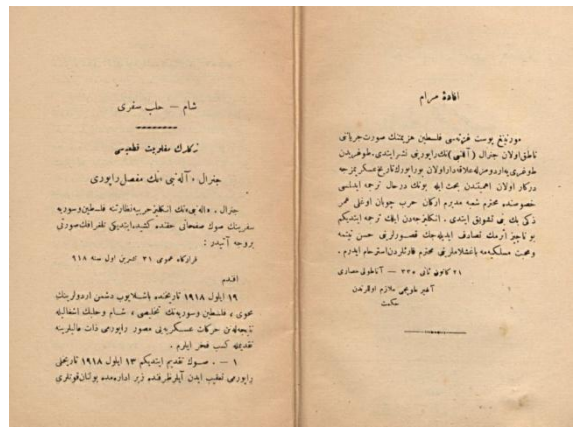 افادۀ مرام
مورنینغ پوست غزته‌سی فلسطین هزیمتنك صورت جریانی
ناطق اولان جنرال (آلنبی) نك راپورینی نشر ایتدی. طوغریدن
طوغری‌یه اردومزله علاقه‌دار اولان بو راپورك تاریخ عسكریمزجه
دركار اولان اهمیتندن بحث ایله بونك درحال ترجمه ایدلمسی
خصوصنده محترم شعبه مدیرم اركان حرب چوبان اوغلی عمر
ذكی بك بنی تشویق ایتدی. انكلیزجه‌دن ایلك ترجمه ایتدیكم
بو ناچیز اثرمك تصادف ایدیله‌جك قصورلرینی حسن نیتمه
ومحبت مسلكیه‌مه باغشلاملرینی محترم قارئلردن استرحام ایدرم.
۲۱ كانون ثانی ۳۳۵ — آناطولی حصاری
آغیر طوپجی ملازم اوللرندن
حكمت
شام – حلب سفری
تركلرك مغلوبیت قطعیه‌سی
جنرال «آلـه‌نبی» نك مفصل راپوری
جنرال «اله‌نبی» نك انكلتره حربیه نظارتنه فلسطین وسوریه
سفرینك صوك صفحاتی حقنده كشیده ایتدیكی تلغرافك صورتی
بروجه آتیدر :
قرارگاه عمومی ۳۱ تشرین اول سنه ۹۱۸
افندم
۱۹ ایلول ۱۹۱۸ تاریخنده باشلایوب دشمن اردولرینك
محوی، فلسطین وسوریه‌نك تخلیصی، شام وحلبك اشغالیله
نتیجه‌لنن حركات عسكریه‌یی مصور راپورمی ذات عالیلرینه
تقدیمله كسب فخر ایلرم.
۱ — صوك تقدیم ایتدیكم ۱۳ ایلول ۱۹۱۸ تاریخلی
راپورمی تعقیب ایدن آیلر ظرفنده زیر اداره‌مده بولنان قوتلری